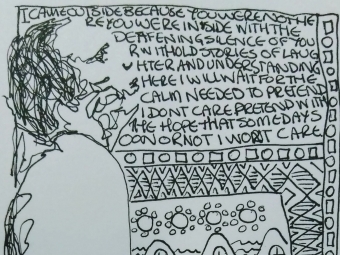 I CAME OUTSIDE BECAUSE YOU WERE NOT HE
RE YOU WERE INSIDE WITH THE
DEAFENING SILENCE OF YOU
R WITHOLD STORIES OF LAUG
HTER AND UNDERSTANDING
HERE I WILL WAIT FOR THE
CALM NEEDED TO PRETEND
I DONT CARE PRETEND WITH
THE HOPE THAT SOMEDAYS
OON OR NOT I WONT CARE